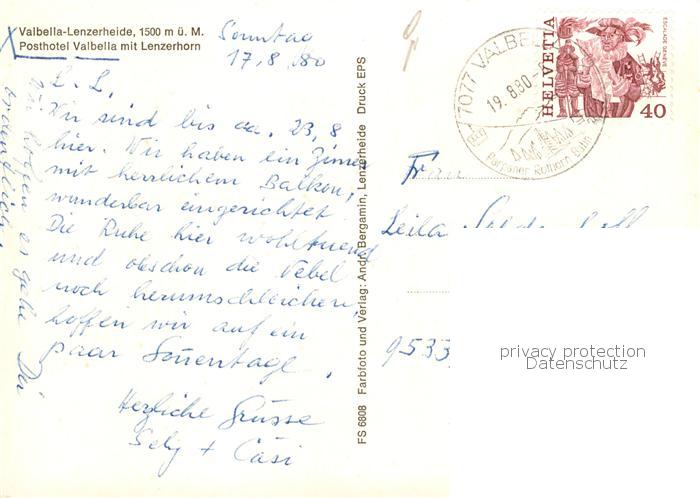 Valbella-Lenzerheide, 1500 m ü. M.
Posthotel Valbella mit Lenzerhorn
Sonntag
17, 8, 80
L. L.
Wir sind bis ca. 23, 8
hier. Wir haben ein Zimer
mit herrlichem Balkon,
wunderbar eingerichtet.
Die Ruhe hier wohltuend
und obschon die Nebel
noch herumschleichen,
hoffen wir auf ein
paar Sonentage.
Herzliche Grüsse
+ Cäsi
Wir hoffen es gehe Dir
ordentlich.
FS 6808 Farbfoto und Verlag: André Bergamin, Lenzerheide Druck EPS
7077 VALBE
19. 8. 80
Parpaner Rothorn Bahn
HELVETIA
ESCALADE GENÈVE
40
Frau
Leila
9533
privacy protection
Datenschutz